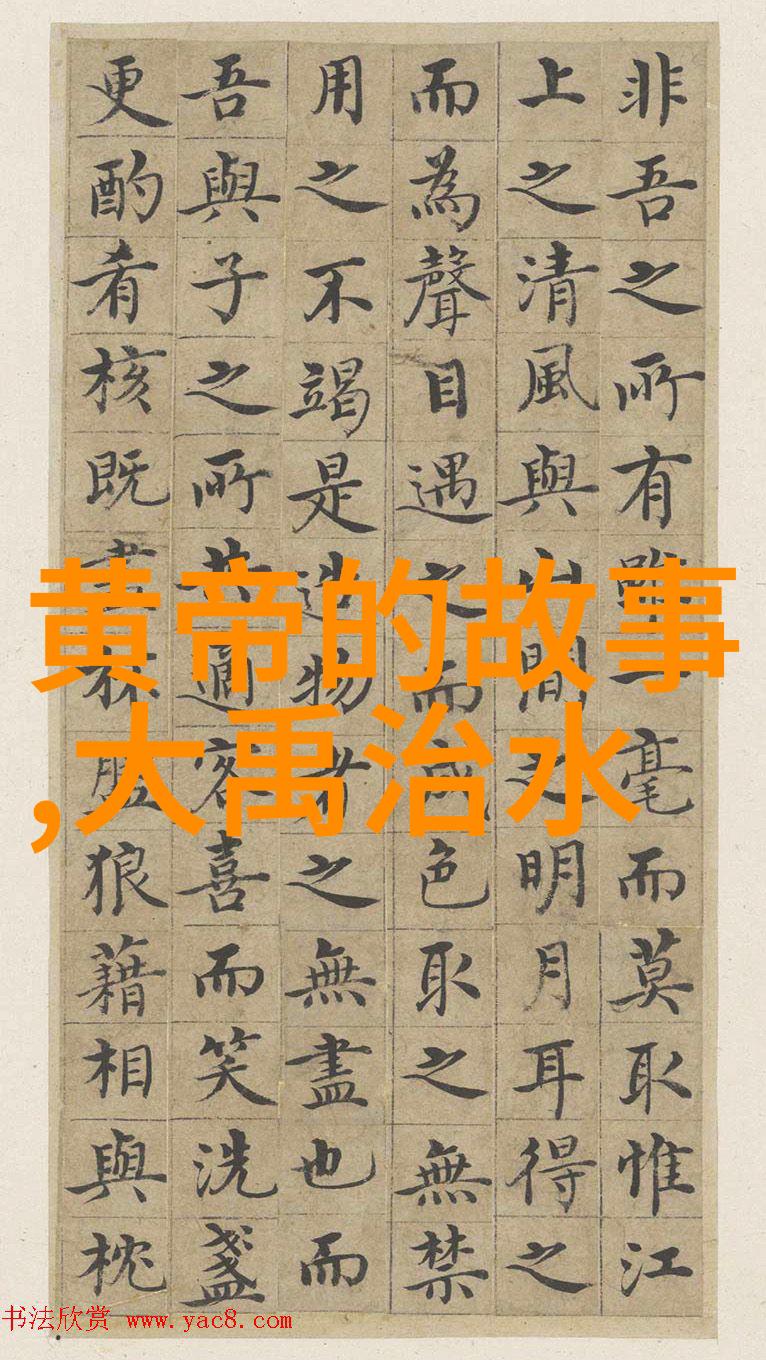 非吾之所有雖一毫而莫取惟江
上之清風與山間之明月耳得之
而為聲目遇之而成色取之無禁
用之不竭是造物者之無盡也而
吾與子之所共適客喜而笑洗盞
更酌肴核既盡杯盤狼藉相與枕
黄帝的故事
,大禹治水
书法欣赏 www.yac8.com